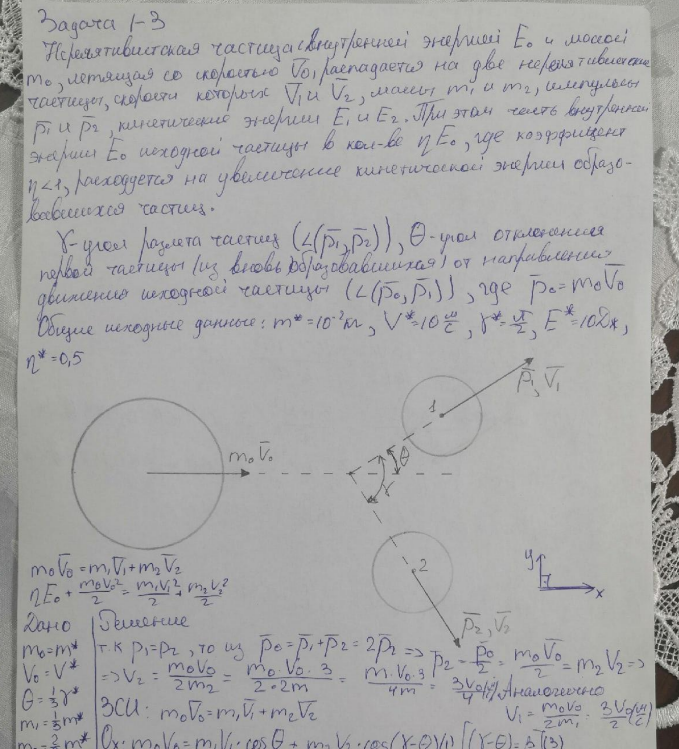 Задача 1-3
Нерелятивистская частица с внутренней энергией E₀ и массой
m₀, летящая со скоростью V̄₀, распадается на две нерелятивистские
частицы, скорости которых V̄₁ и V̄₂, массы m₁ и m₂, импульсы
p̄₁ и p̄₂, кинетические энергии E₁ и E₂. При этом часть внутренней
энергии E₀ исходной частицы в кол-ве ηE₀, где коэффицент
η<1, расходуется на увеличение кинетической энергии образо-
вавшихся частиц.
γ-угол разлета частиц (∠(p̄₁,p̄₂)), Θ-угол отклонения
первой частицы (из вновь образовавшихся) от направления
движения исходной частицы (∠(p̄₀,p̄₁)), где p̄₀=m₀V̄₀
Общие исходные данные: m*=10⁻²кг, V*=10 м/с, γ*=π/2, E*=10Дж,
η*=0,5
1
p̄₁, V̄₁
m₀V̄₀
Θ
γ
2
p̄₂, V̄₂
y
x
m₀V̄₀=m₁V̄₁+m₂V̄₂
ηE₀+m₀V₀²/2=m₁V₁²/2+m₂V₂²/2
Дано
m₀=m*
V₀=V*
Θ=1/3γ*
m₁=1/3m*
Решение
т.к p₁=p₂, то из p̄₀=p̄₁+p̄₂=2p̄₂=>p̄₂=p̄₀/2=m₀V̄₀/2=m₂V̄₂=>
=>V₂=m₀V₀/2m₂=m₀·V₀·3/2·2m=m·V₀·3/4m=3V₀/4 Аналогично
V₁=m₀V₀/2m₁=3V₀/2(м/с)
ЗСИ: m₀V̄₀=m₁V̄₁+m₂V̄₂
Ox: m₀V₀=m₁V₁·cosΘ+m₂V₂·cos(γ-Θ)